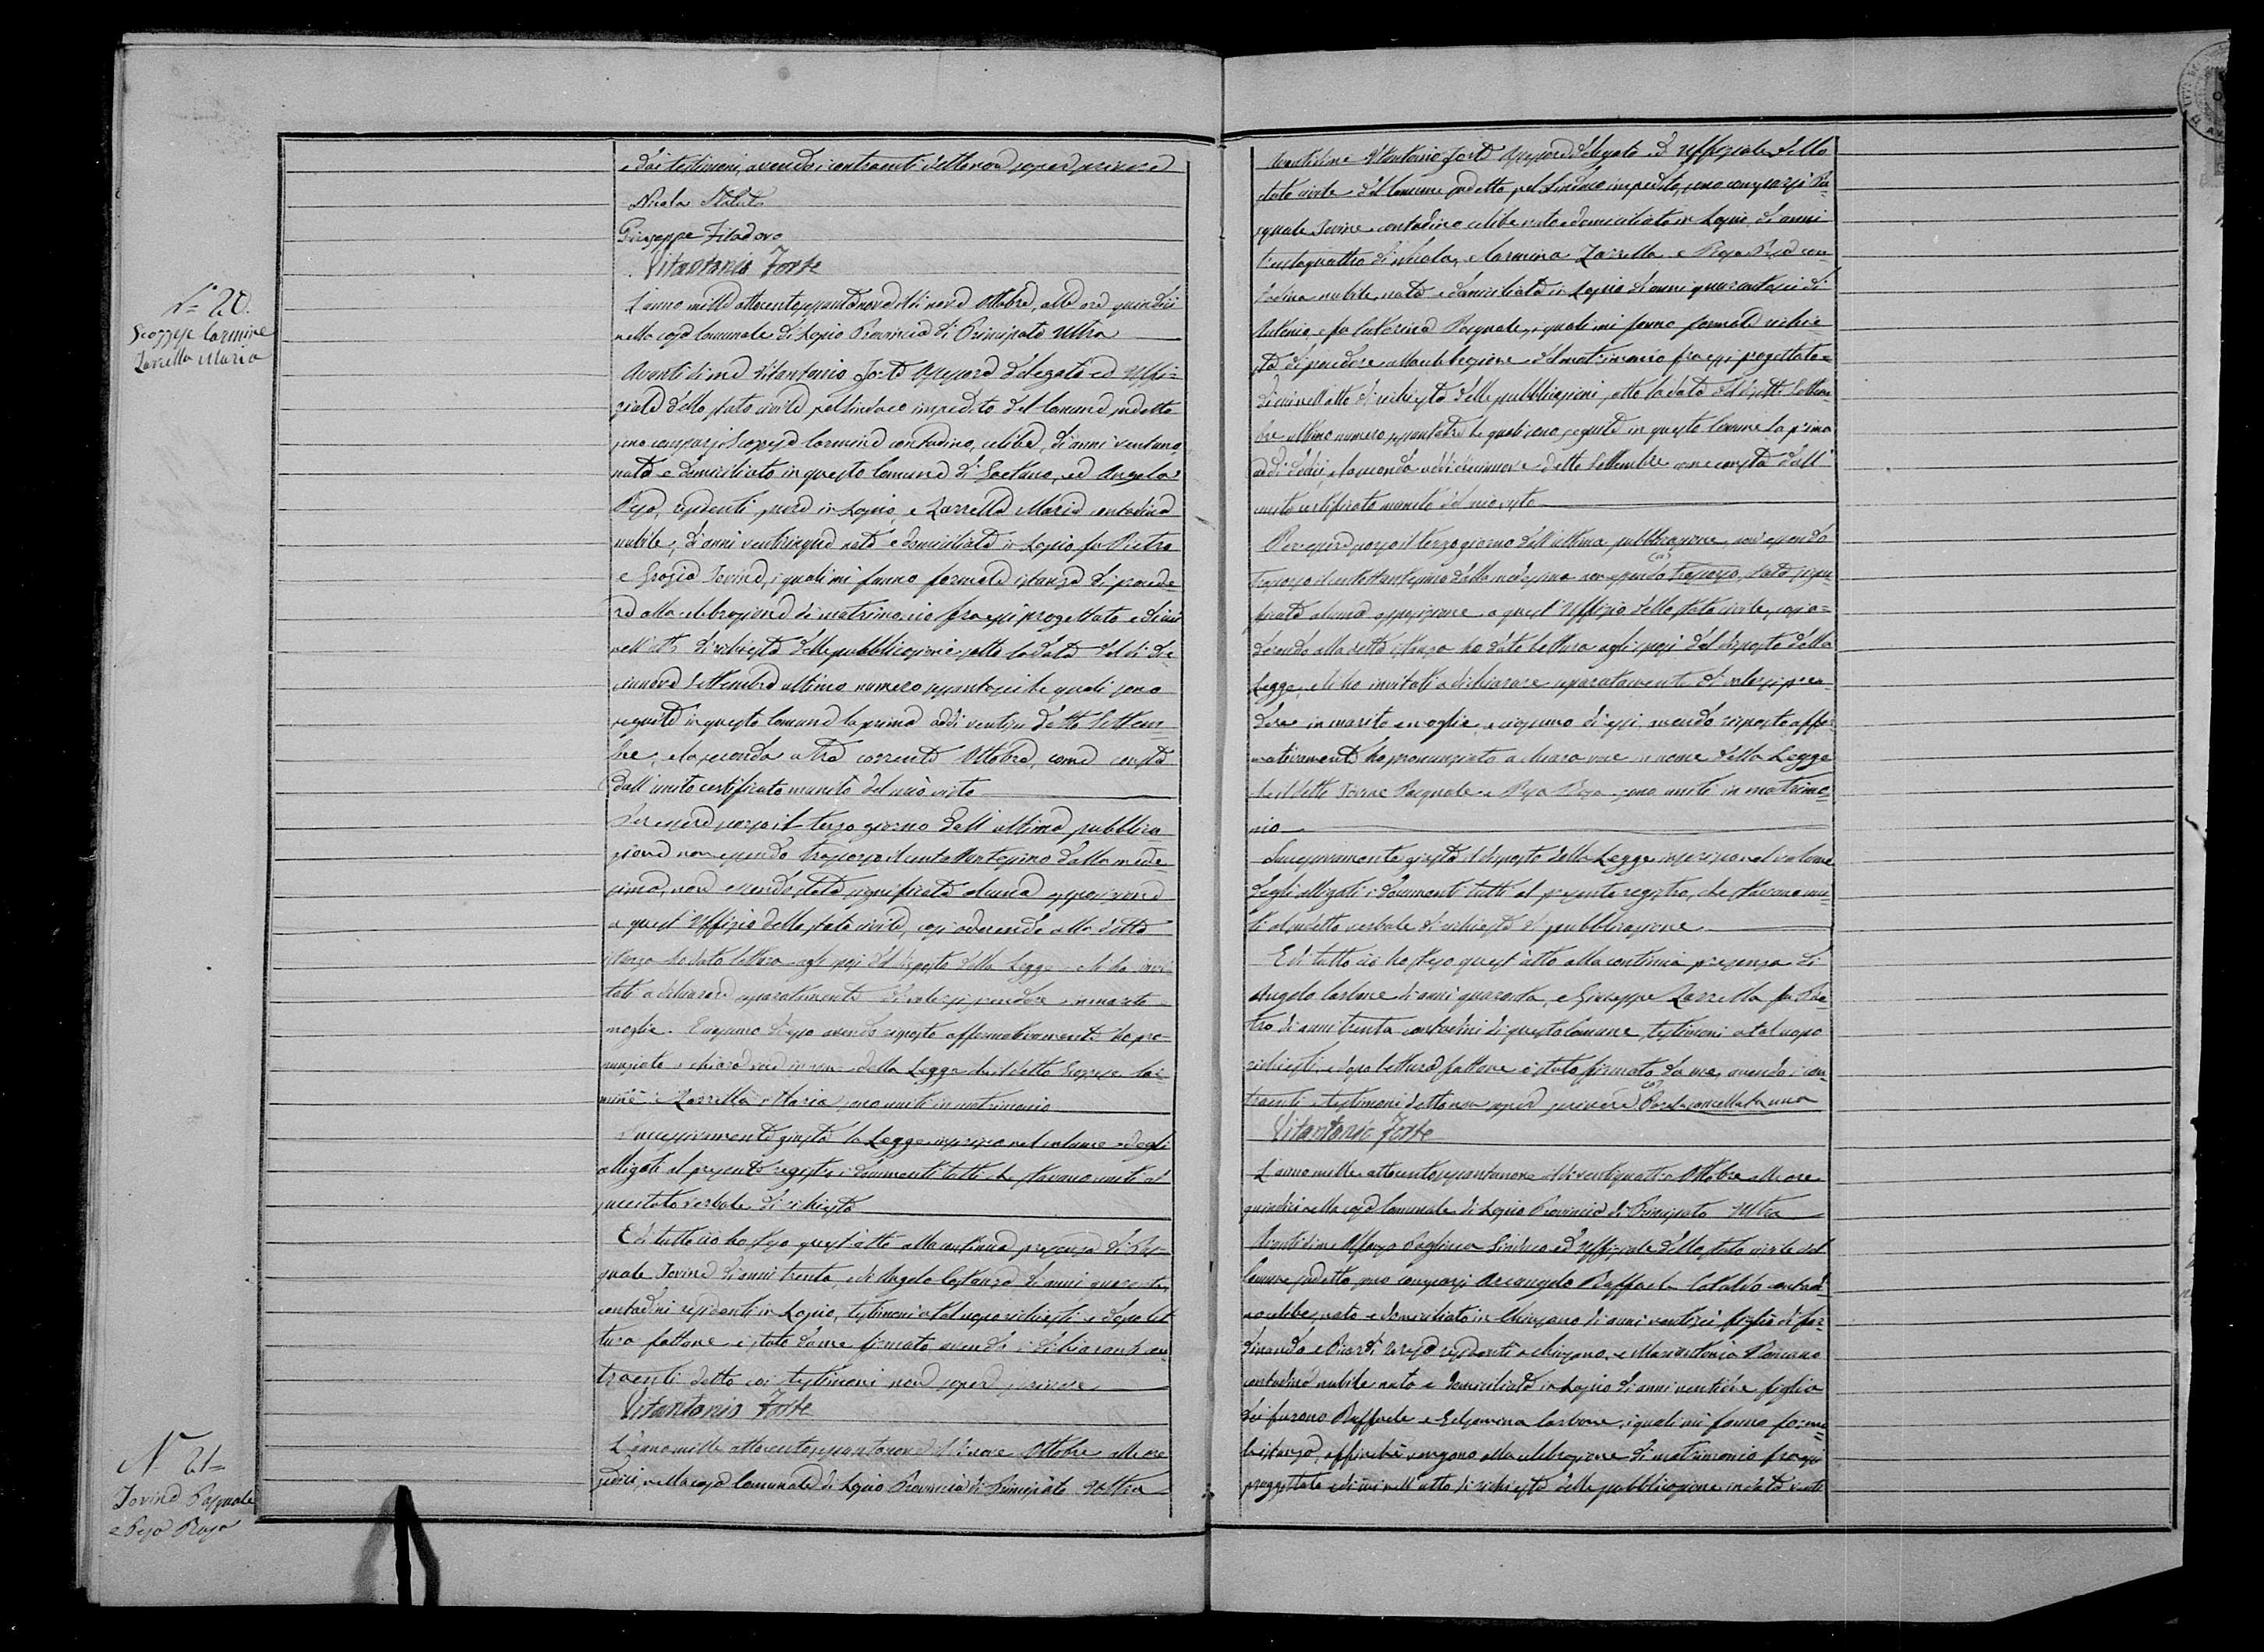 e dai testimoni, avendo i contraenti detto non saper scrivere
Nicola
Giuseppe
Vitantonio Forte
N.º 20.
Scozzese Carmine
Zarrella Maria
L'anno mille ottocentosessantanove il dì nove Ottobre, alle ore quindici
nella casa Comunale di Lapio Provincia di Principato Ultra
Avanti di me Vitantonio Forte Assessore delegato ed Uffi=
ziale dello stato civile pel Sindaco impedito del Comune sudetto
sono comparsi Scozzese Carmine contadino, celibe, di anni ventuno,
nato e domiciliato in questo Comune di Gaetano, ed Angela
residenti pure in Lapio, e Zarrella Maria contadina
nubile, di anni venticinque nata e domiciliata in Lapio fu Pietro
e Grazia Iovine, i quali mi fanno formale istanza di procede=
re alla celebrazione di matrimonio fra essi progettato e di cui
nell'atto di richiesta delle pubblicazioni sotto la data del dì die
cinnove Settembre ultimo numero le quali sono
seguite in questo Comune la prima addì ventisei detto Settem=
bre, e la seconda a tre corrente Ottobre, come consta
dall'unito certificato munito del mio visto
Per essere scorso il terzo giorno dell'ultima pubblica
zione non essendo trascorso il centottantesimo dalla mede
sima, non essendo stata significata alcuna opposizione
a quest'Uffizio dello stato civile, così aderendo alla detta
istanza ho dato lettura agli sposi del disposto della Legge e li ho invi
tati a dichiarare separatamente di volersi prendere in marito
moglie. E ciascuno di essi avendo risposto affermativamente ho pro=
nunziato a chiara voce in nome della Legge che il detto Scozzese Car=
mine e Zarrella Maria sono uniti in matrimonio
Successivamente giusta la Legge inseriva nel volume degli
alligati al presente registro i documenti tutti che stavano uniti al
succitato verbale di richiesta
E di tutto ciò ho steso quest'atto alla continua presenza di Pas=
quale Iovine di anni trenta, e di Angelo Costanzo di anni quaranta,
contadini residenti in Lapio, testimoni a tal uopo richiesti e dopo let
tura fattone è stato da me firmato avendo i dichiaranti con
traenti detto coi testimoni non saper scrivere
Vitantonio Forte
N. 21=
Iovine Pasquale
e Rosa
L'anno mille ottocentosessantanove il dì nove Ottobre alle ore
sedici, nella casa Comunale di Lapio Provincia di Principato Ultra
Avanti di me Vitantonio Forte Assessore delegato ed Uffiziale dello
stato civile del Comune sudetto pel Sindaco impedito, sono comparsi Pa=
squale Iovine contadino celibe nato e domiciliato in Lapio di anni
trentaquattro di Nicola, e Carmina Zarrella e Rosa con=
tadina nubile, nata e domiciliata in Lapio di anni di
Antonio e fu Caterina Pasquale, i quali mi fanno formale richie
sta di procedere alla celebrazione del matrimonio fra essi progettato=
di cui nell'atto di richiesta delle pubblicazioni sotto la data del dì sette Settem=
bre ultimo numero le quali sono seguite in questo Comune la prima
addì dodici, e la seconda addì diecinnove detto Settembre come consta dall'
unito certificato munito del mio visto
Per essere scorso il terzo giorno dall'ultima pubblicazione, non essendo
trascorso il centottantesimo dalla medesima non essendo trascorso (a) stata signi=
ficata alcuna opposizione a quest'Uffizio dello stato civile, così a=
derendo alla detta istanza ho dato lettura agli sposi del disposto della
Legge, e li ho invitati a dichiarare separatamente di volersi pren=
dere in marito e moglie, e ciascuno di essi avendo risposto affer=
mativamente ho pronunziato a chiara voce in nome della Legge
che il detto Iovine Pasquale e Rosa sono uniti in matrimo=
nio
Successivamente giusta il disposto della Legge inseriva nel volume
degli alligati i documenti tutti al presente registro, che stavano uni=
ti al sudetto verbale di richiesta di pubblicazione
E di tutto ciò ho steso quest'atto alla continua presenza di
Angelo Carbone di anni quaranta, e Giuseppe Zarrella fu Pie
tro di anni trenta contadini di questo Comune, testimoni a tal uopo
richiesti, e dopo lettura fattone è stato firmato da me, avendo i con=
traenti e testimoni detto non saper scrivere (a) Parola cancellata una
Vitantonio Forte
L'anno mille ottocentosessantanove il dì ventiquattro Ottobre alle ore
quindici nella casa Comunale di Lapio Provincia di Principato Ultra
Avanti di me Alfonso Sindaco ed Uffiziale dello stato civile del
Comune sudetto sono comparsi Arcangelo Raffaele Cataldo contadi
no celibe, nato e domiciliato in Chiusano di anni ventisei figlio di Fer=
dinando e residenti a Chiusano, e Mariantonia Romano
contadina nubile nata e domiciliata in Lapio di anni ventitre figlia
dei furono Raffaele e Carbone, i quali mi fanno forma
le istanza, affinchè vengano alla celebrazione di matrimonio fra essi
progettato e di cui nell'atto di richiesta delle pubblicazione in data venti